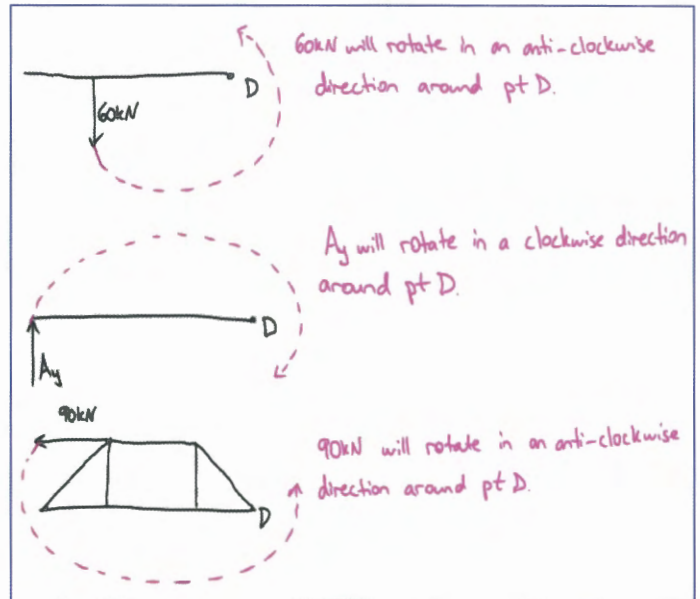 60kN will rotate in an anti-clockwise
direction around pt D.
D
60kN
Ay will rotate in a clockwise direction
around pt D.
D
Ay
90kN
90kN will rotate in an anti-clockwise
direction around pt D.
D